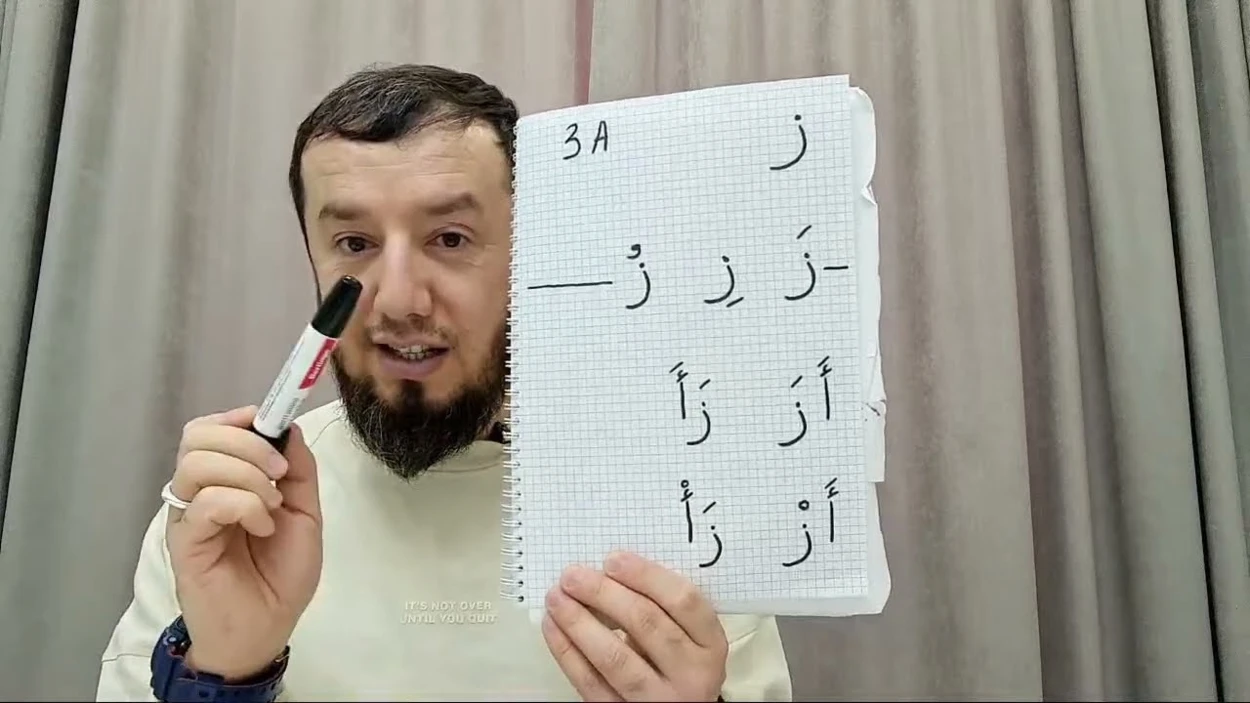 ЗА ز
ـزَ زِ زُ ـــ
أَزَ زَأَ
أَزْ زَأْ
IT'S NOT OVER
UNTIL YOU QUIT